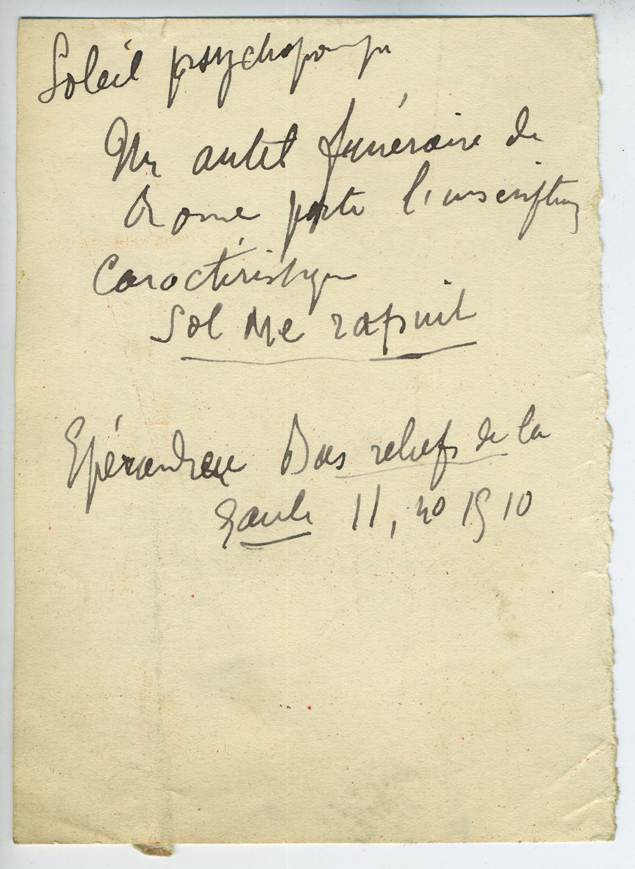 Soleil psychopompe
Un autel funéraire de
Rome porte l'inscription
Caractéristique
Sol Me rapuit
Espérandieu Bas reliefs de la
Gaule II, no 1510